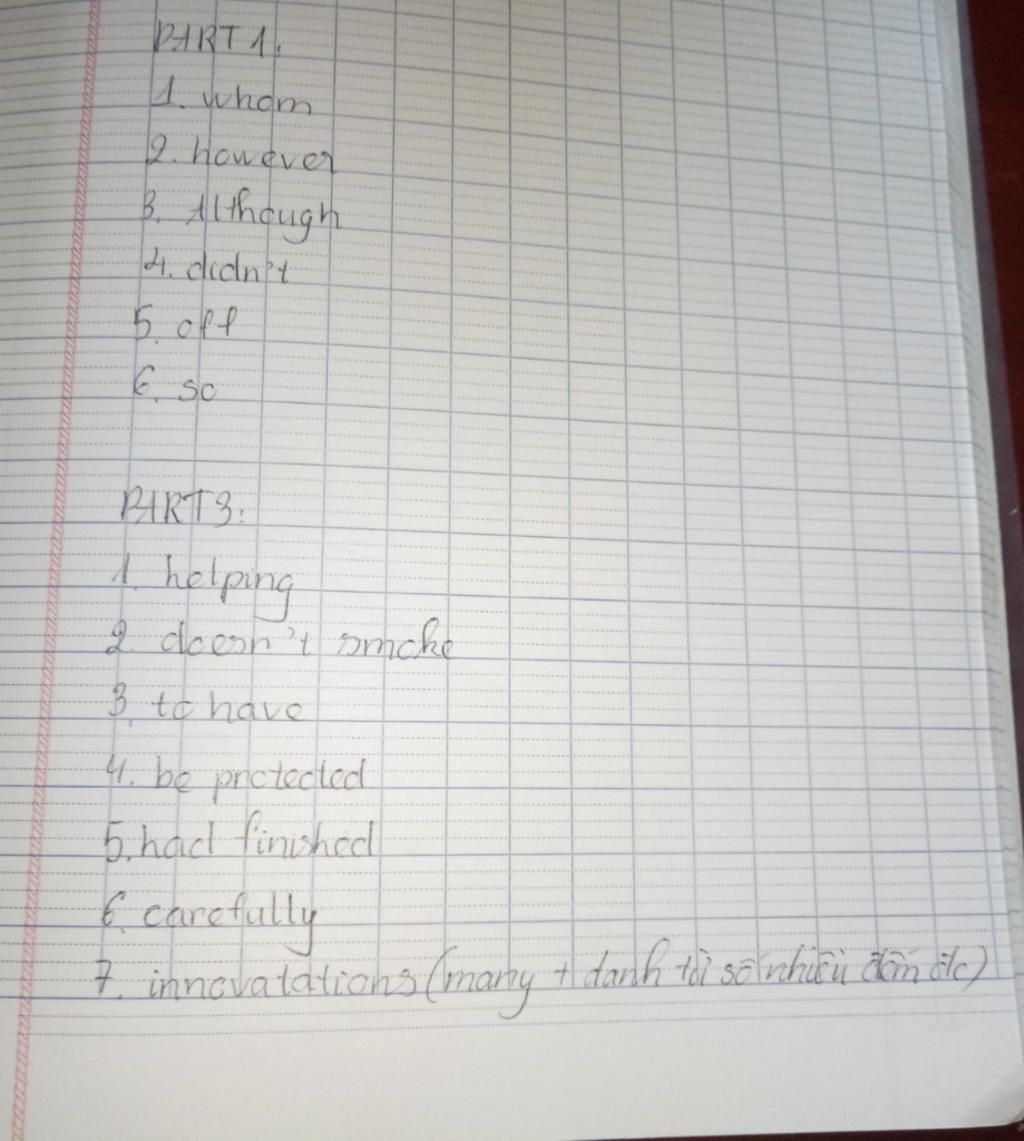 PART 1.
1. whom
2. however
3. Although
4. didn't
5. off
6. so
PART 3:
1. helping
2. doesn't smoke
3. to have
4. be protected
5. had finished
6. carefully
7. innovatations (many + danh từ số nhiều đếm đc)